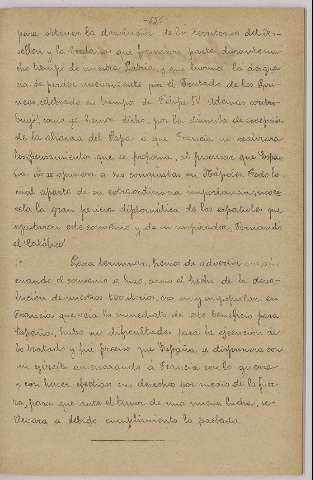 para obtener la devolución de los territorios del Rosellón y la Cerdaña que formaron parte durante mucho tiempo de nuestra Patria, y que
de perder nuevamente por el Tratado de los Pirineos, celebrado en tiempo de Felipe IV. Además contribuyó, como ya hemos dicho, por la cláusula de excepción
de la alianza del Papa a que Francia no realizara
los pensamientos que se proponia, al procurar que España
no se opusiera a sus conquistas en Nápoles. Todo lo
cual aparte de su extraordinaria importancia
esta la gran pericia diplomática de los españoles que
ajustaron este convenio y de su inspirador Fernando
el Católico.
Para terminar, hemos de advertir que
cuando el convenio se hizo, como el hecho de la devolución
de nuestros territorios, era muy impopular en
Francia que veia lo inmediato de este beneficio para
España, hubo sus dificultades para la ejecucion de
lo tratado y fue preciso que España, se dispusiera con
un ejército amenazando a Francia con la guerra
y con hacer efectivo su derecho por medio de la fuerza,
para que ante el temor de una nueva lucha, se
llevara a debido cumplimiento lo pactado.